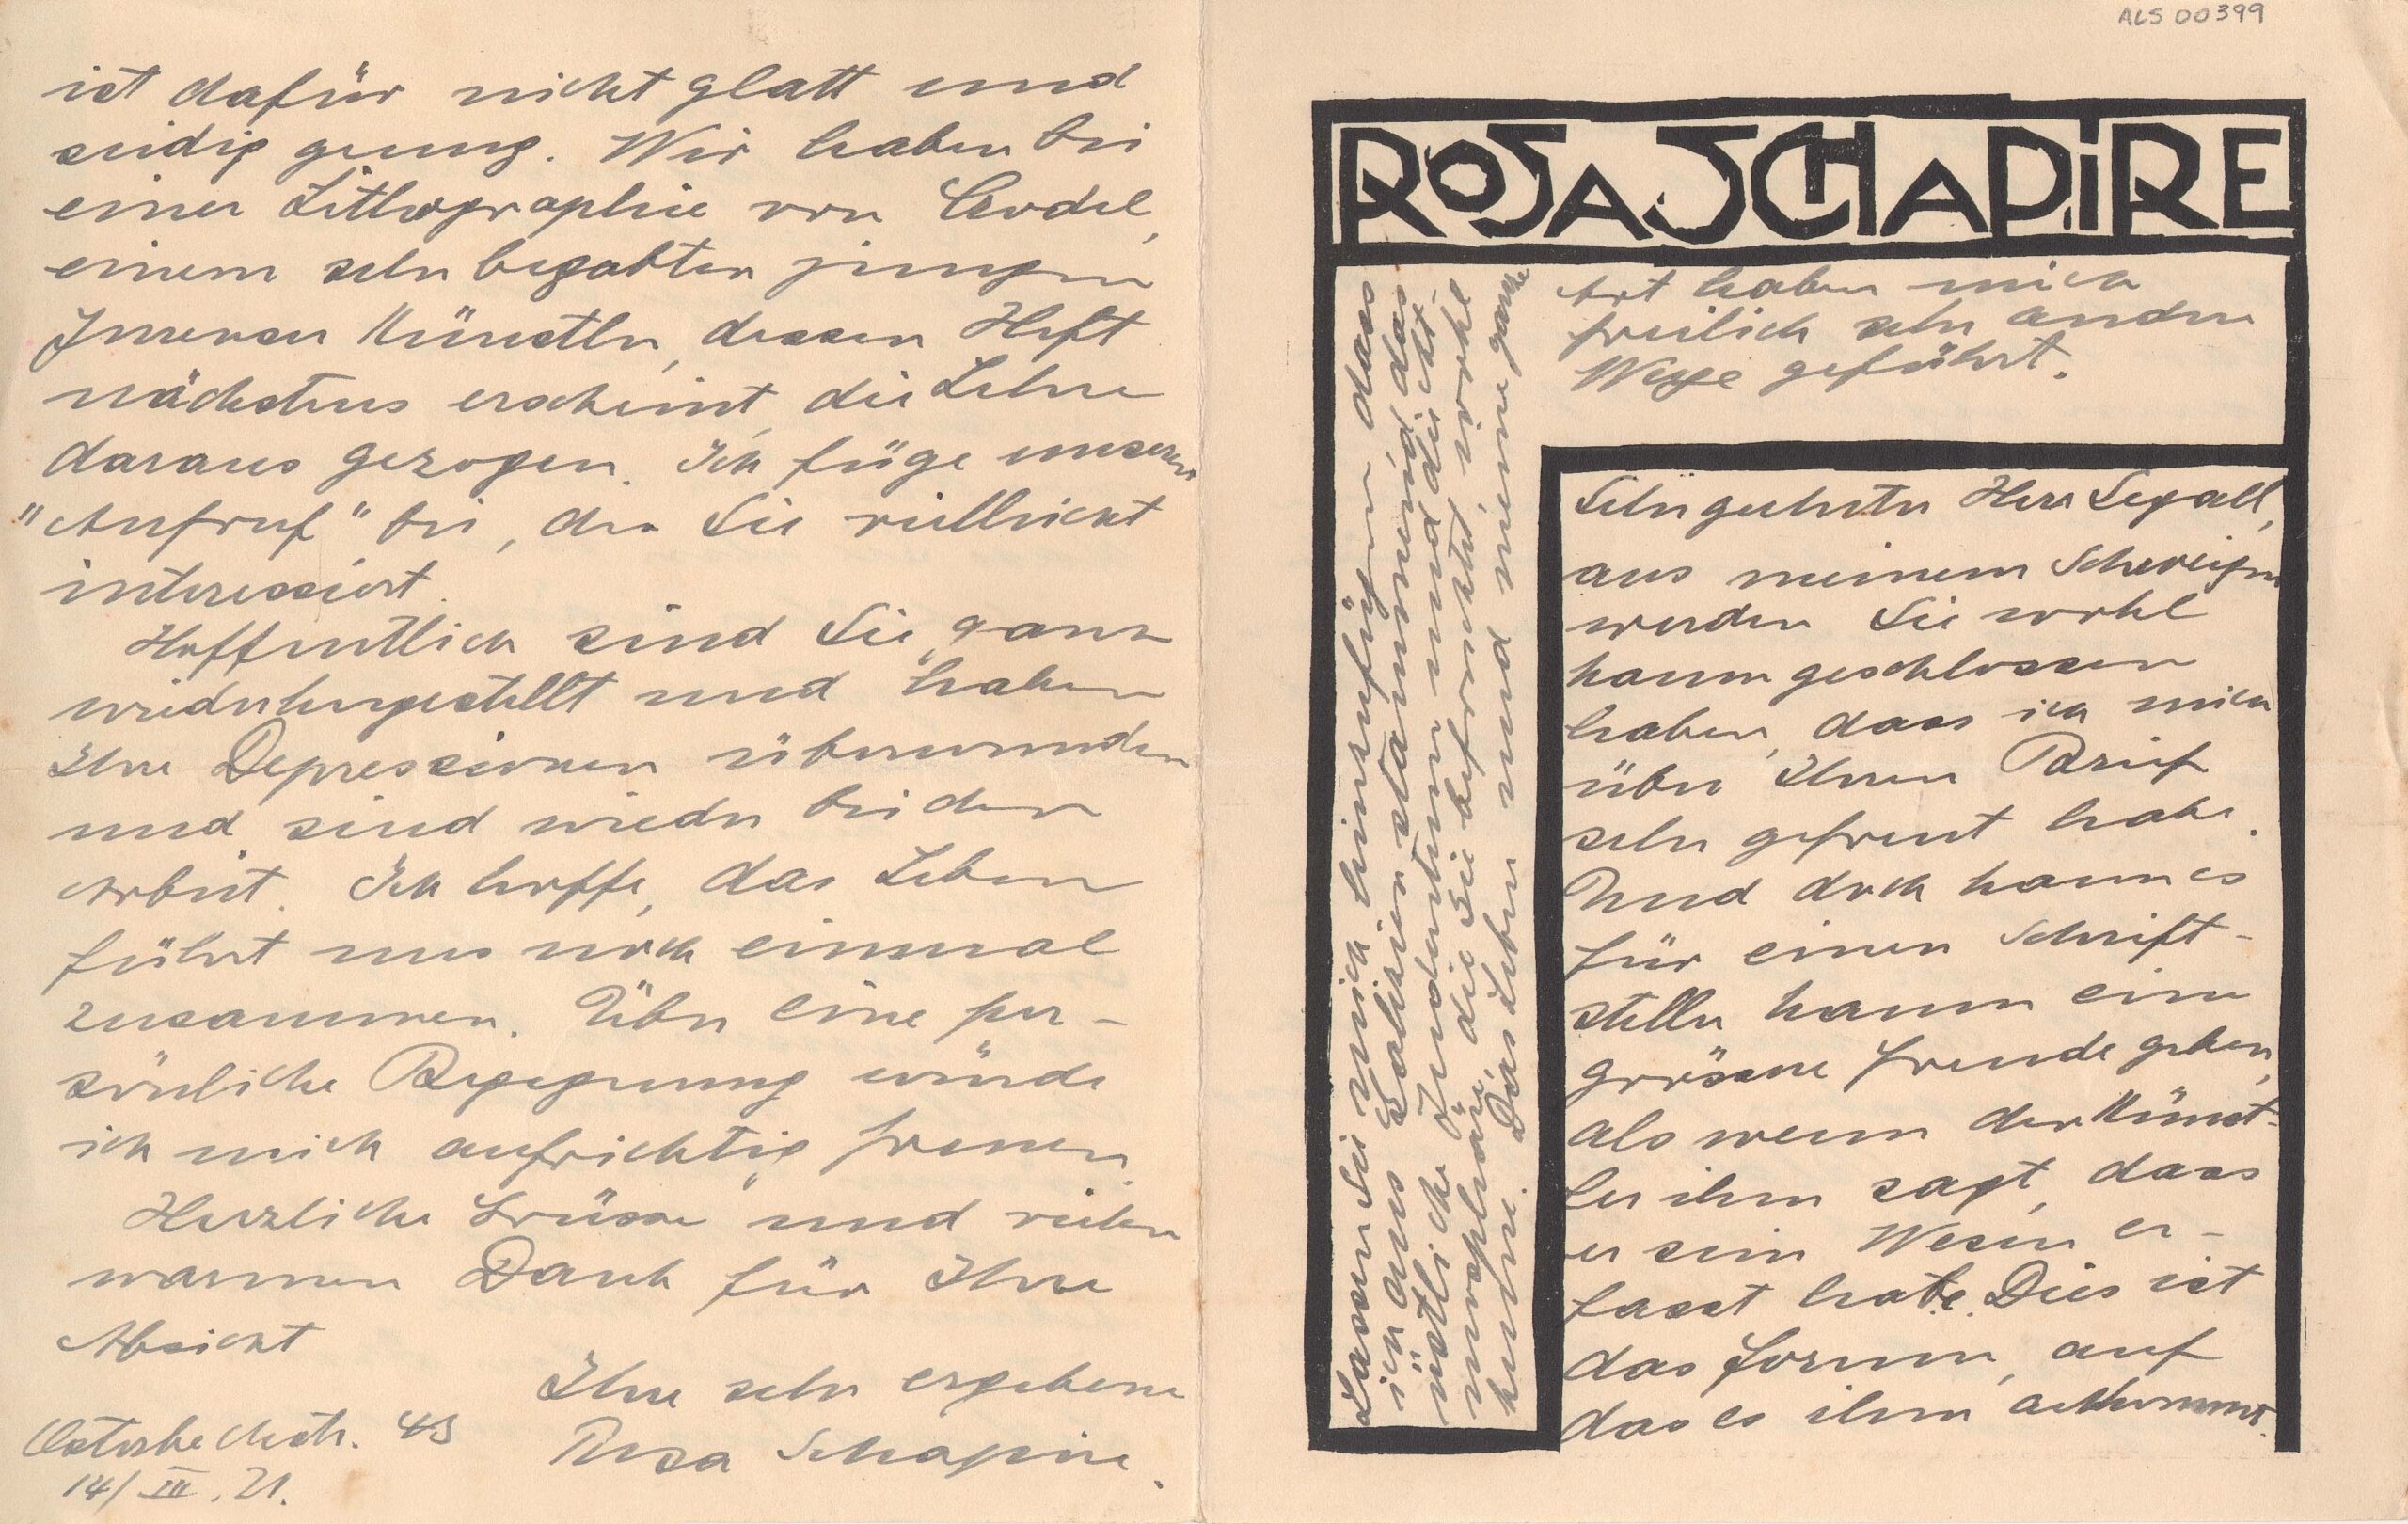 ALS 00399
ROSA SCHAPIRE
Sehr geehrter Herr Segall,
aus meinem Schweigen
werden Sie wohl
kaum geschlossen
haben, dass ich mich
über Ihren Brief
sehr gefreut habe.
Und doch kann es
für einen Schrift-
steller kaum eine
grössere Freude geben,
als wenn der Künst-
ler ihm sagt, dass
er sein Wesen er-
fasst habe. Dies ist
das Forum, auf
das es ihm ankommt.
Lassen Sie mich hinzufügen dass
ich aus Galizien stamme und das
östliche Judentum und die Luft-
atmosphäre, die Sie befruchtet, wohl
kenne. Das Leben und meine ganze
Art haben mich
freilich sehr andere
Wege geführt.
ist dafür nicht glatt und
seidig genug. Wir haben bei
einer Lithographie von
einem sehr begabten jungen
Künstler, dessen Heft
nächstens erscheint, die Lehre
daraus gezogen. Ich füge unseren
"Aufruf" bei, der Sie vielleicht
interessiert.
Hoffentlich sind Sie ganz
wiederhergestellt und haben
Ihre Depressionen überwunden
und sind wieder bei der
Arbeit. Ich hoffe, das Leben
führt uns noch einmal
zusammen. Über eine per-
sönliche Begegnung würde
ich mich aufrichtig freuen.
Herzliche Grüsse und vielen
warmen Dank für Ihre
Absicht
Ihre sehr ergebene
Rosa Schapire.
Osterbeckstr. 43
14/III.21.